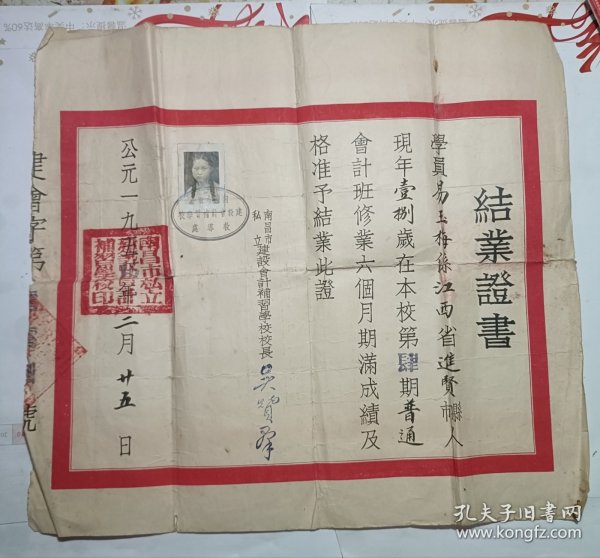 結業證書
學員易玉梅係江西省進賢縣市人
現年壹捌歲在本校第肆期普通
會計班修業六個月期滿成績及
格准予結業此證
南昌市私立建設會計補習學校校長
公元一九五 年二月廿五日
南昌市私立建設會計補習學校印
建設會計補習學校
教導處
建會字第
號
孔夫子旧书网
www.kongfz.com